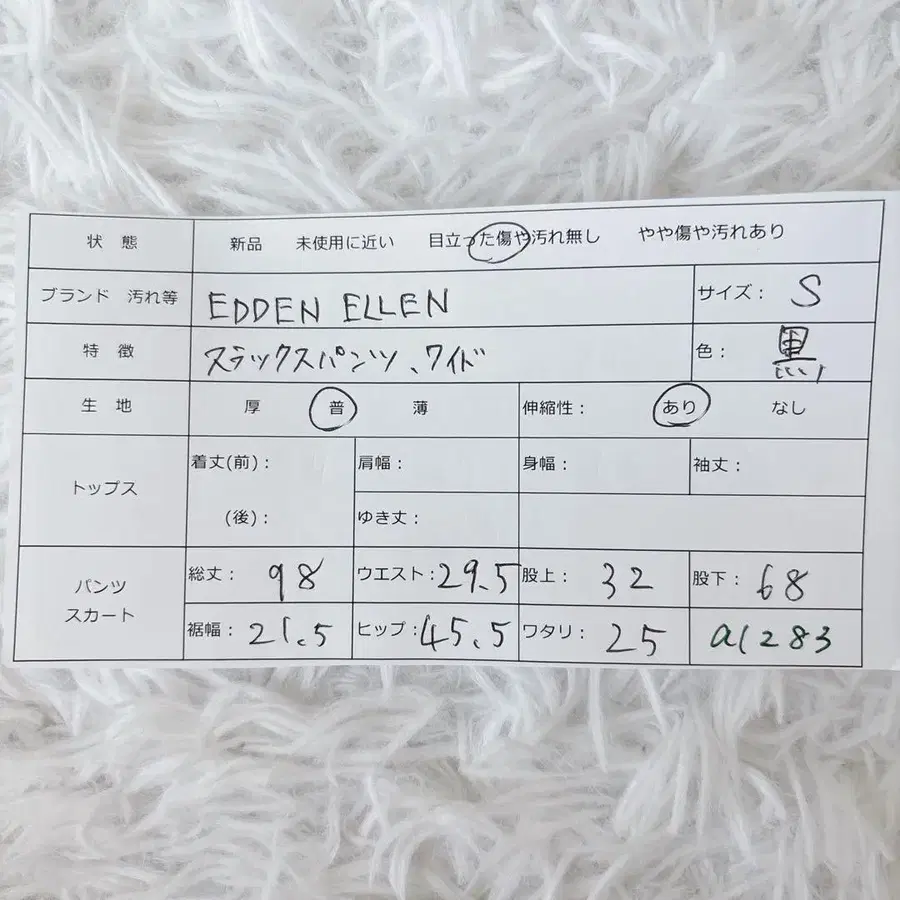 状 態 新品 未使用に近い 目立った傷や汚れ無し やや傷や汚れあり
ブランド 汚れ等 EDDEN ELLEN サイズ： S
特 徴 スラックスパンツ、ワイド 色： 黒
生 地 厚 普 薄 伸縮性： あり なし
トップス 着丈(前)： 肩幅： 身幅： 袖丈：
(後)： ゆき丈：
パンツ スカート 総丈： 98 ウエスト： 29.5 股上： 32 股下： 68
裾幅： 21.5 ヒップ： 45.5 ワタリ： 25 a1283